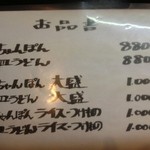 お品書
ちゃんぽん 880
皿うどん 880
ちゃんぽん 大盛 1.000
皿うどん 大盛 1.000
ちゃんぽんライス・つけもの 1.000
皿うどんライス・つけもの 1.000